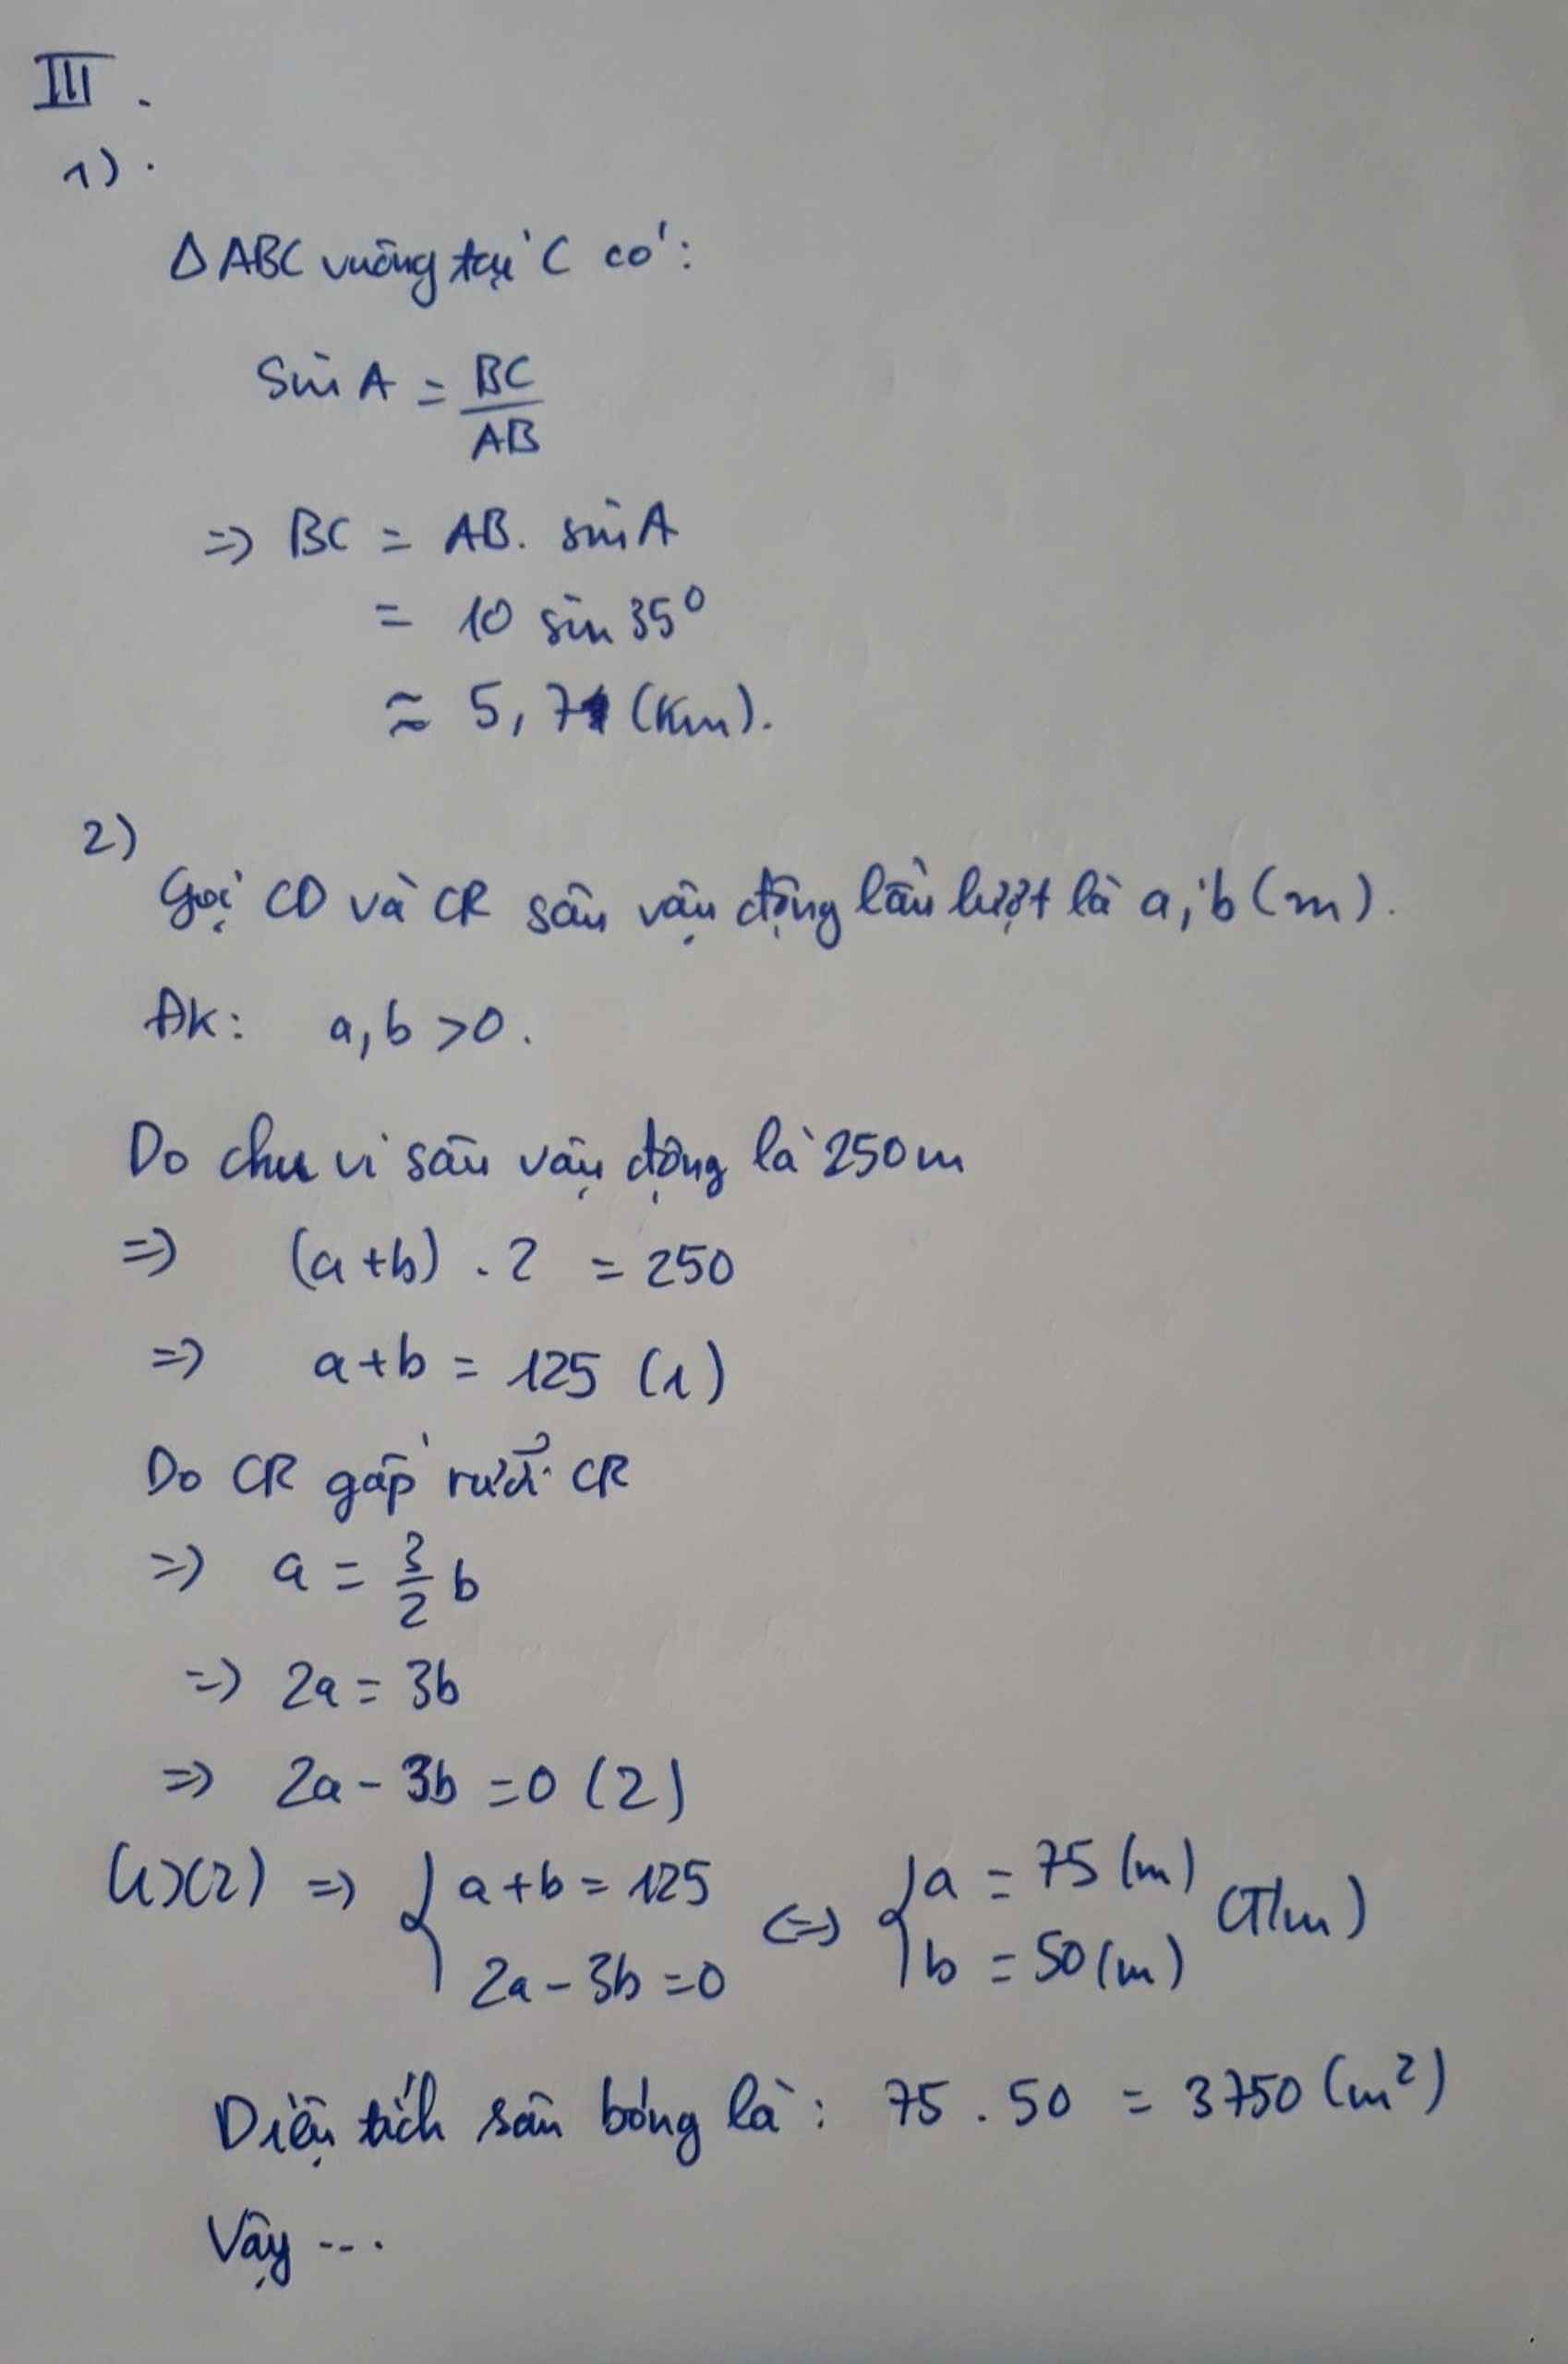 III.
1).
Δ ABC vuông tại C có:
Sin A = BC/AB
=> BC = AB. sin A
= 10 sin 35⁰
≈ 5,71 (Km).
2)
Gọi CD và CR sân vận động lần lượt là a; b (m).
ĐK: a, b > 0.
Do chu vi sân vận động là 250m
=> (a+b) . 2 = 250
=> a+b = 125 (1)
Do CR gấp rưỡi CR
=> a = 3/2 b
=> 2a = 3b
=> 2a - 3b = 0 (2)
(1)(2) => { a+b = 125 ; 2a - 3b = 0 <=> { a = 75 (m) ; b = 50 (m) (T/m)
Diện tích sân bóng là: 75 . 50 = 3750 (m²)
Vậy ...